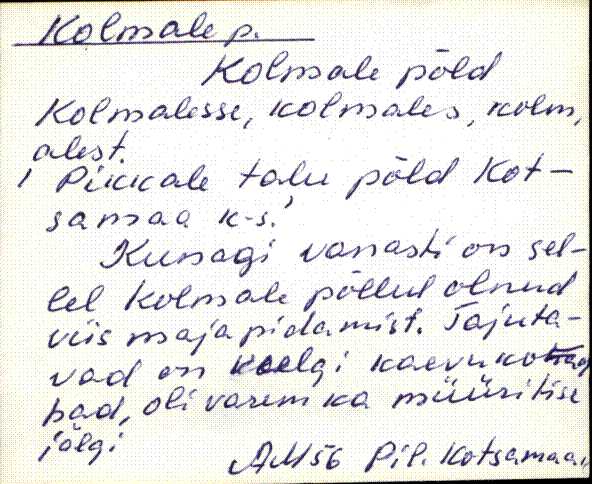 Kolmale p.
Kolmale põld
Kolmalesse, kolmales, kolm,
alest.
' Pikkale talu põld Kot-
samaa k-s.'
Kunagi vanasti on sel-
lel Kolmale põllul olnud
viis majapidamist. Tajuta-
vad on kaelgi kaevuko
pad, oli varem ka müüritise
jälgi
AM56 Pil. Kotsamaa